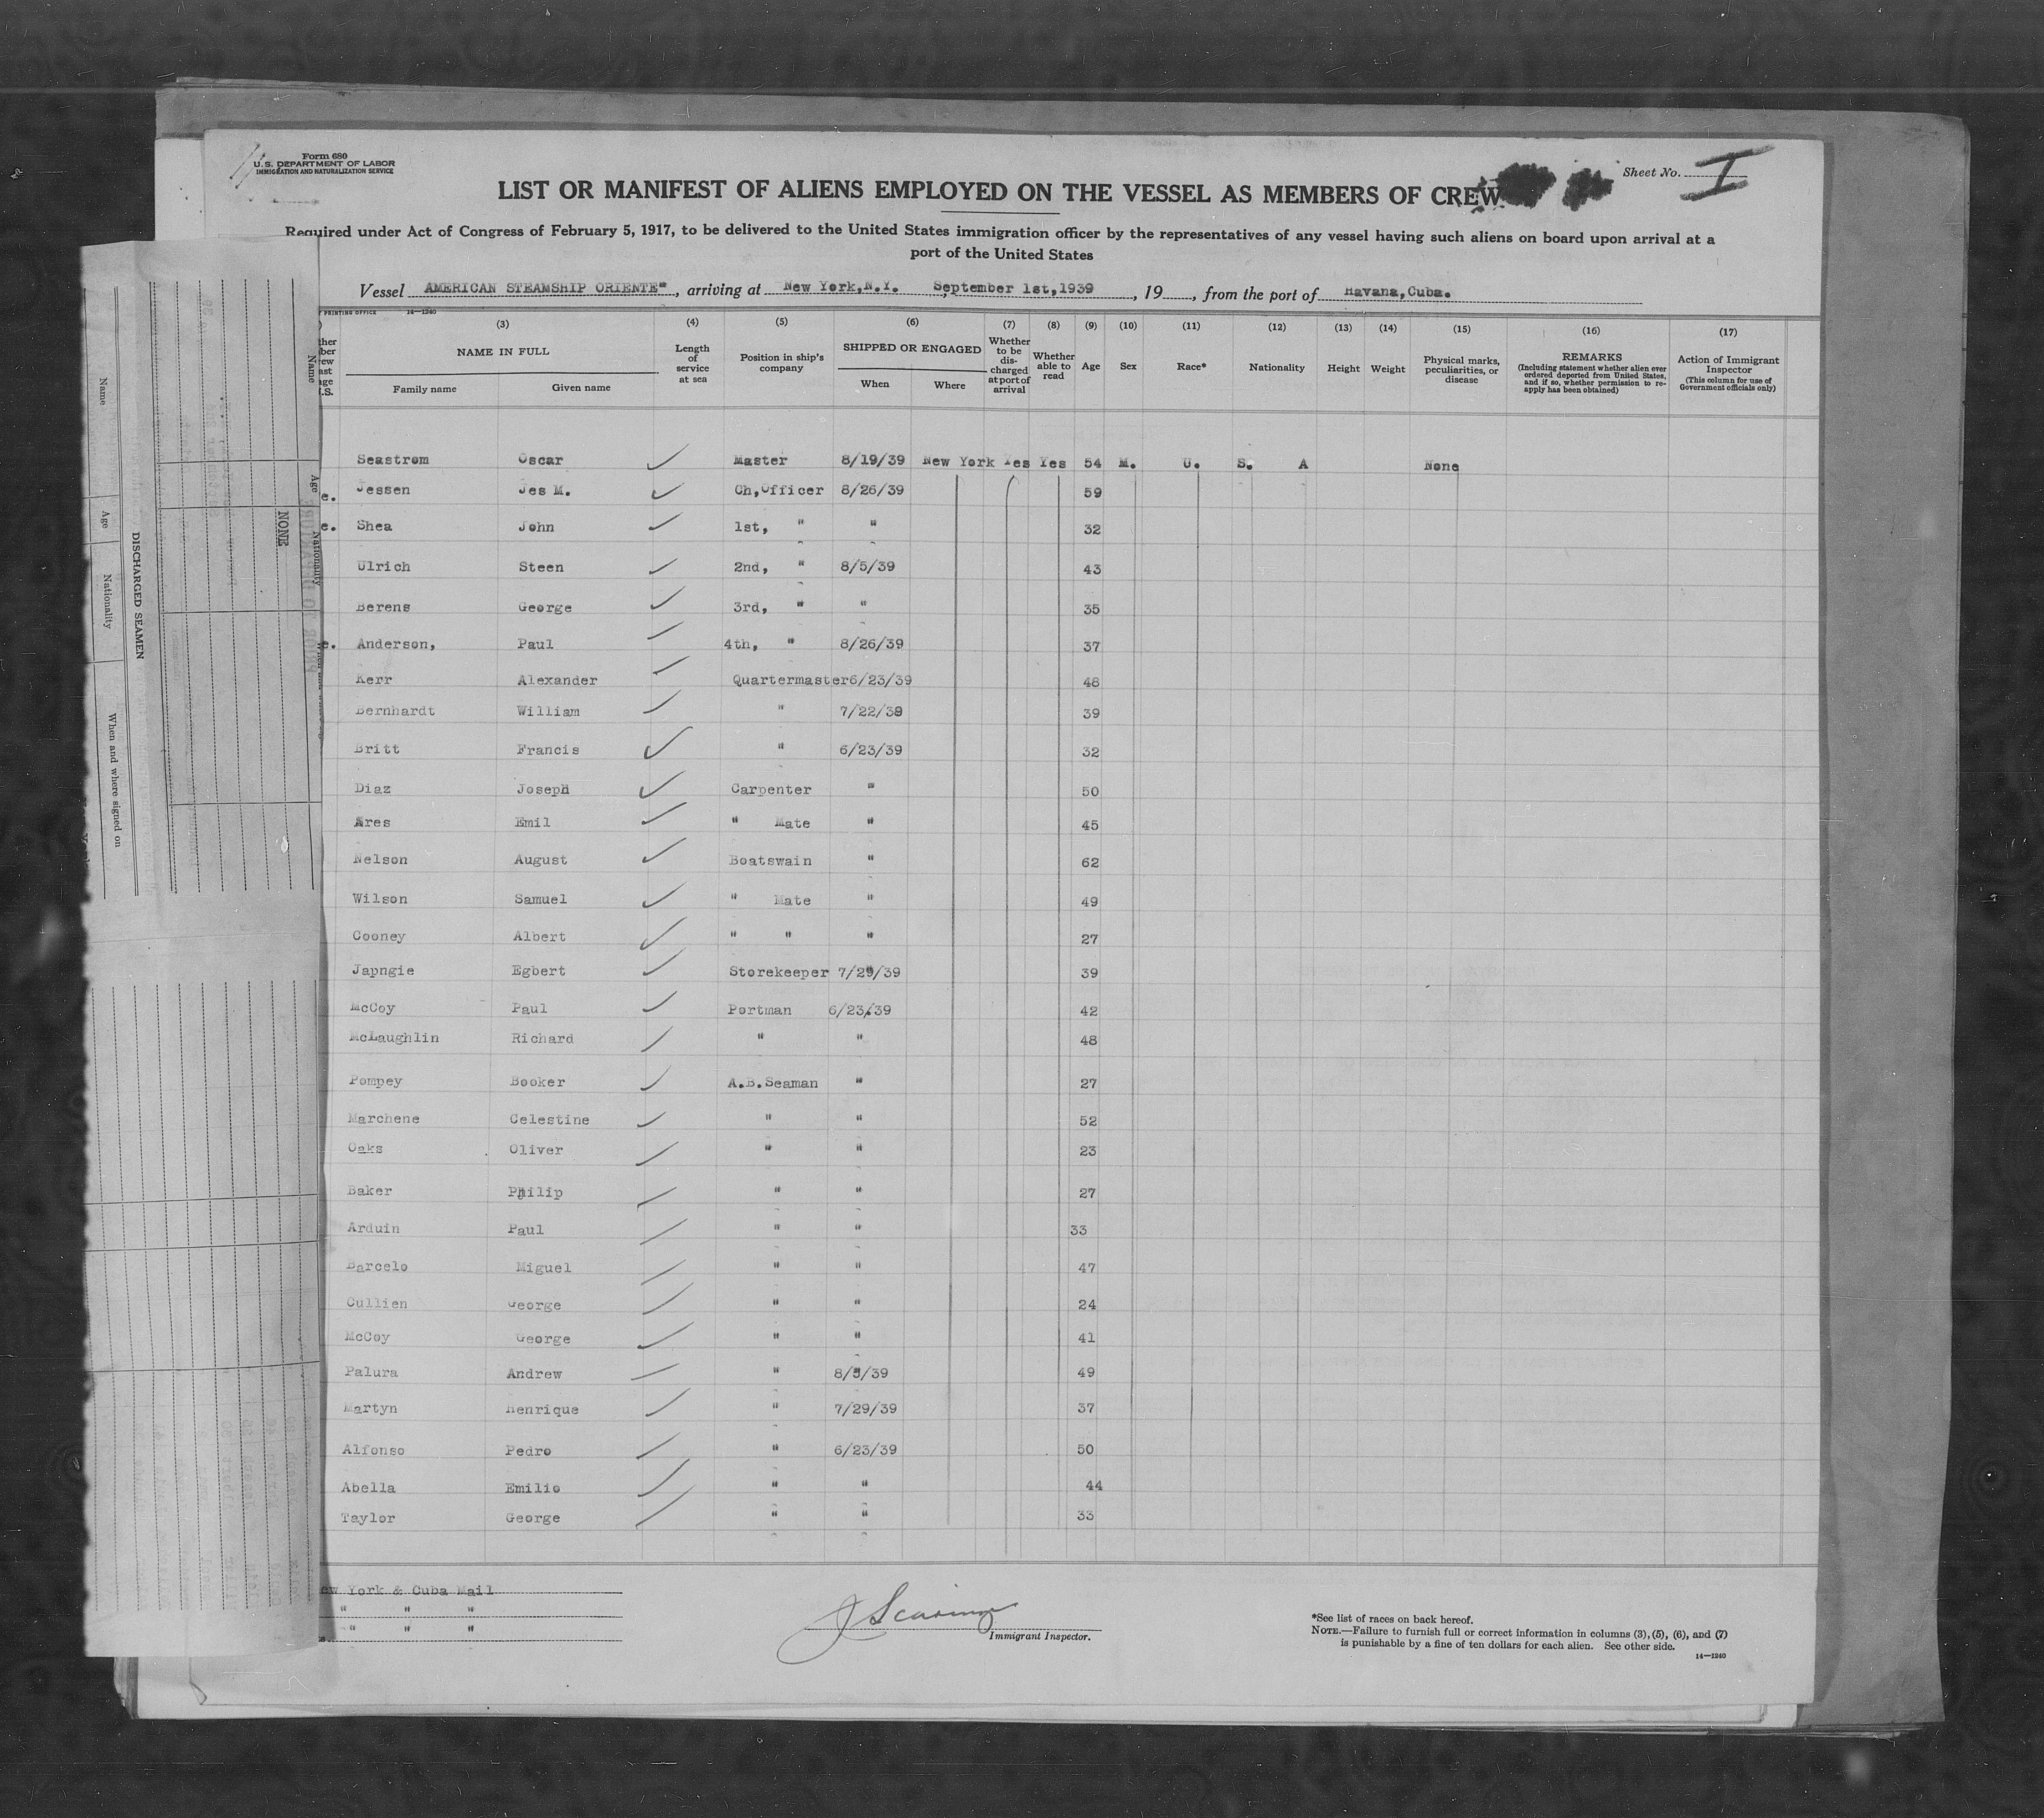 Form 680
U. S. DEPARTMENT OF LABOR
IMMIGRATION AND NATURALIZATION SERVICE
Sheet No. I
LIST OR MANIFEST OF ALIENS EMPLOYED ON THE VESSEL AS MEMBERS OF CREW
Required under Act of Congress of February 5, 1917, to be delivered to the United States immigration officer by the representatives of any vessel having such aliens on board upon arrival at a
port of the United States
Vessel AMERICAN STEAMSHIP ORIENTE", arriving at New York,N.Y. September 1st,1939, 19, from the port of Havana,Cuba.
PRINTING OFFICE 14—1240
(3) NAME IN FULL Family name Given name
(4) Length of service at sea
(5) Position in ship's company
(6) SHIPPED OR ENGAGED When Where
(7) Whether to be discharged at port of arrival
(8) Whether able to read
(9) Age
(10) Sex
(11) Race*
(12) Nationality
(13) Height
(14) Weight
(15) Physical marks, peculiarities, or disease
(16) REMARKS (Including statement whether alien ever ordered deported from United States, and if so, whether permission to re-apply has been obtained)
(17) Action of Immigrant Inspector (This column for use of Government officials only)
Seastrom Oscar Master 8/19/39 New York Yes Yes 54 M. U. S. A None
Jessen Jes M. Ch,Officer 8/26/39 59
Shea John 1st, " " 32
Ulrich Steen 2nd, " 8/5/39 43
Berens George 3rd, " " 35
Anderson, Paul 4th, " 8/26/39 37
Kerr Alexander Quartermaster 6/23/39 48
Bernhardt William " 7/22/39 39
Britt Francis " 6/23/39 32
Diaz Joseph Carpenter " 50
Ares Emil " Mate " 45
Nelson August Boatswain " 62
Wilson Samuel " Mate " 49
Cooney Albert " " " 27
Japngie Egbert Storekeeper 7/29/39 39
McCoy Paul Portman 6/23/39 42
McLaughlin Richard " " 48
Pompey Booker A.B.Seaman " 27
Marchene Celestine " " 52
Oaks Oliver " " 23
Baker Philip " " 27
Arduin Paul " " 33
Barcelo Miguel " " 47
Cullien George " " 24
McCoy George " " 41
Palura Andrew " 8/5/39 49
Martyn Henrique " 7/29/39 37
Alfonso Pedro " 6/23/39 50
Abella Emilio " " 44
Taylor George " " 33
York & Cuba Mail
" " "
" " "
Immigrant Inspector.
*See list of races on back hereof.
NOTE.—Failure to furnish full or correct information in columns (3), (5), (6), and (7)
is punishable by a fine of ten dollars for each alien. See other side.
14—1240
DISCHARGED SEAMEN
Name Age Nationality When and where signed on
Name Age Nationality
NONE